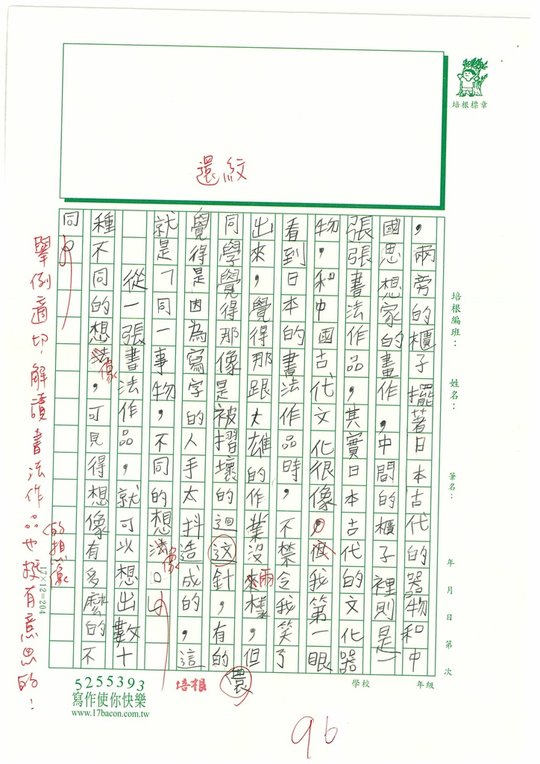 還紋
培根標章
培根編班：
姓名：
筆名：
年 月 日 第 次
，兩旁的櫃子擺著日本古代的器物和中
國思想家的畫作，中間的櫃子裡則是一
張張書法作品，其實日本古代的文化器
物，和中國古代文化很像。我第一眼
看到日本的書法作品時，不禁令我笑了
出來，覺得那跟大雄的作業沒兩樣，但
同學覺得那像是被摺壞的迴紋針，有的
覺得是因為寫字的人手太抖造成的，這
就是「同一事物，不同的想像」。
從一張書法作品，就可以想出數十
種不同的想像，可見得想像有多麼的不
同
舉例適切，解讀書法作品也挺有意思的！
的想像
17×12=204
5255393
寫作使你快樂
www.17bacon.com.tw
培根
農
學校
年級
96